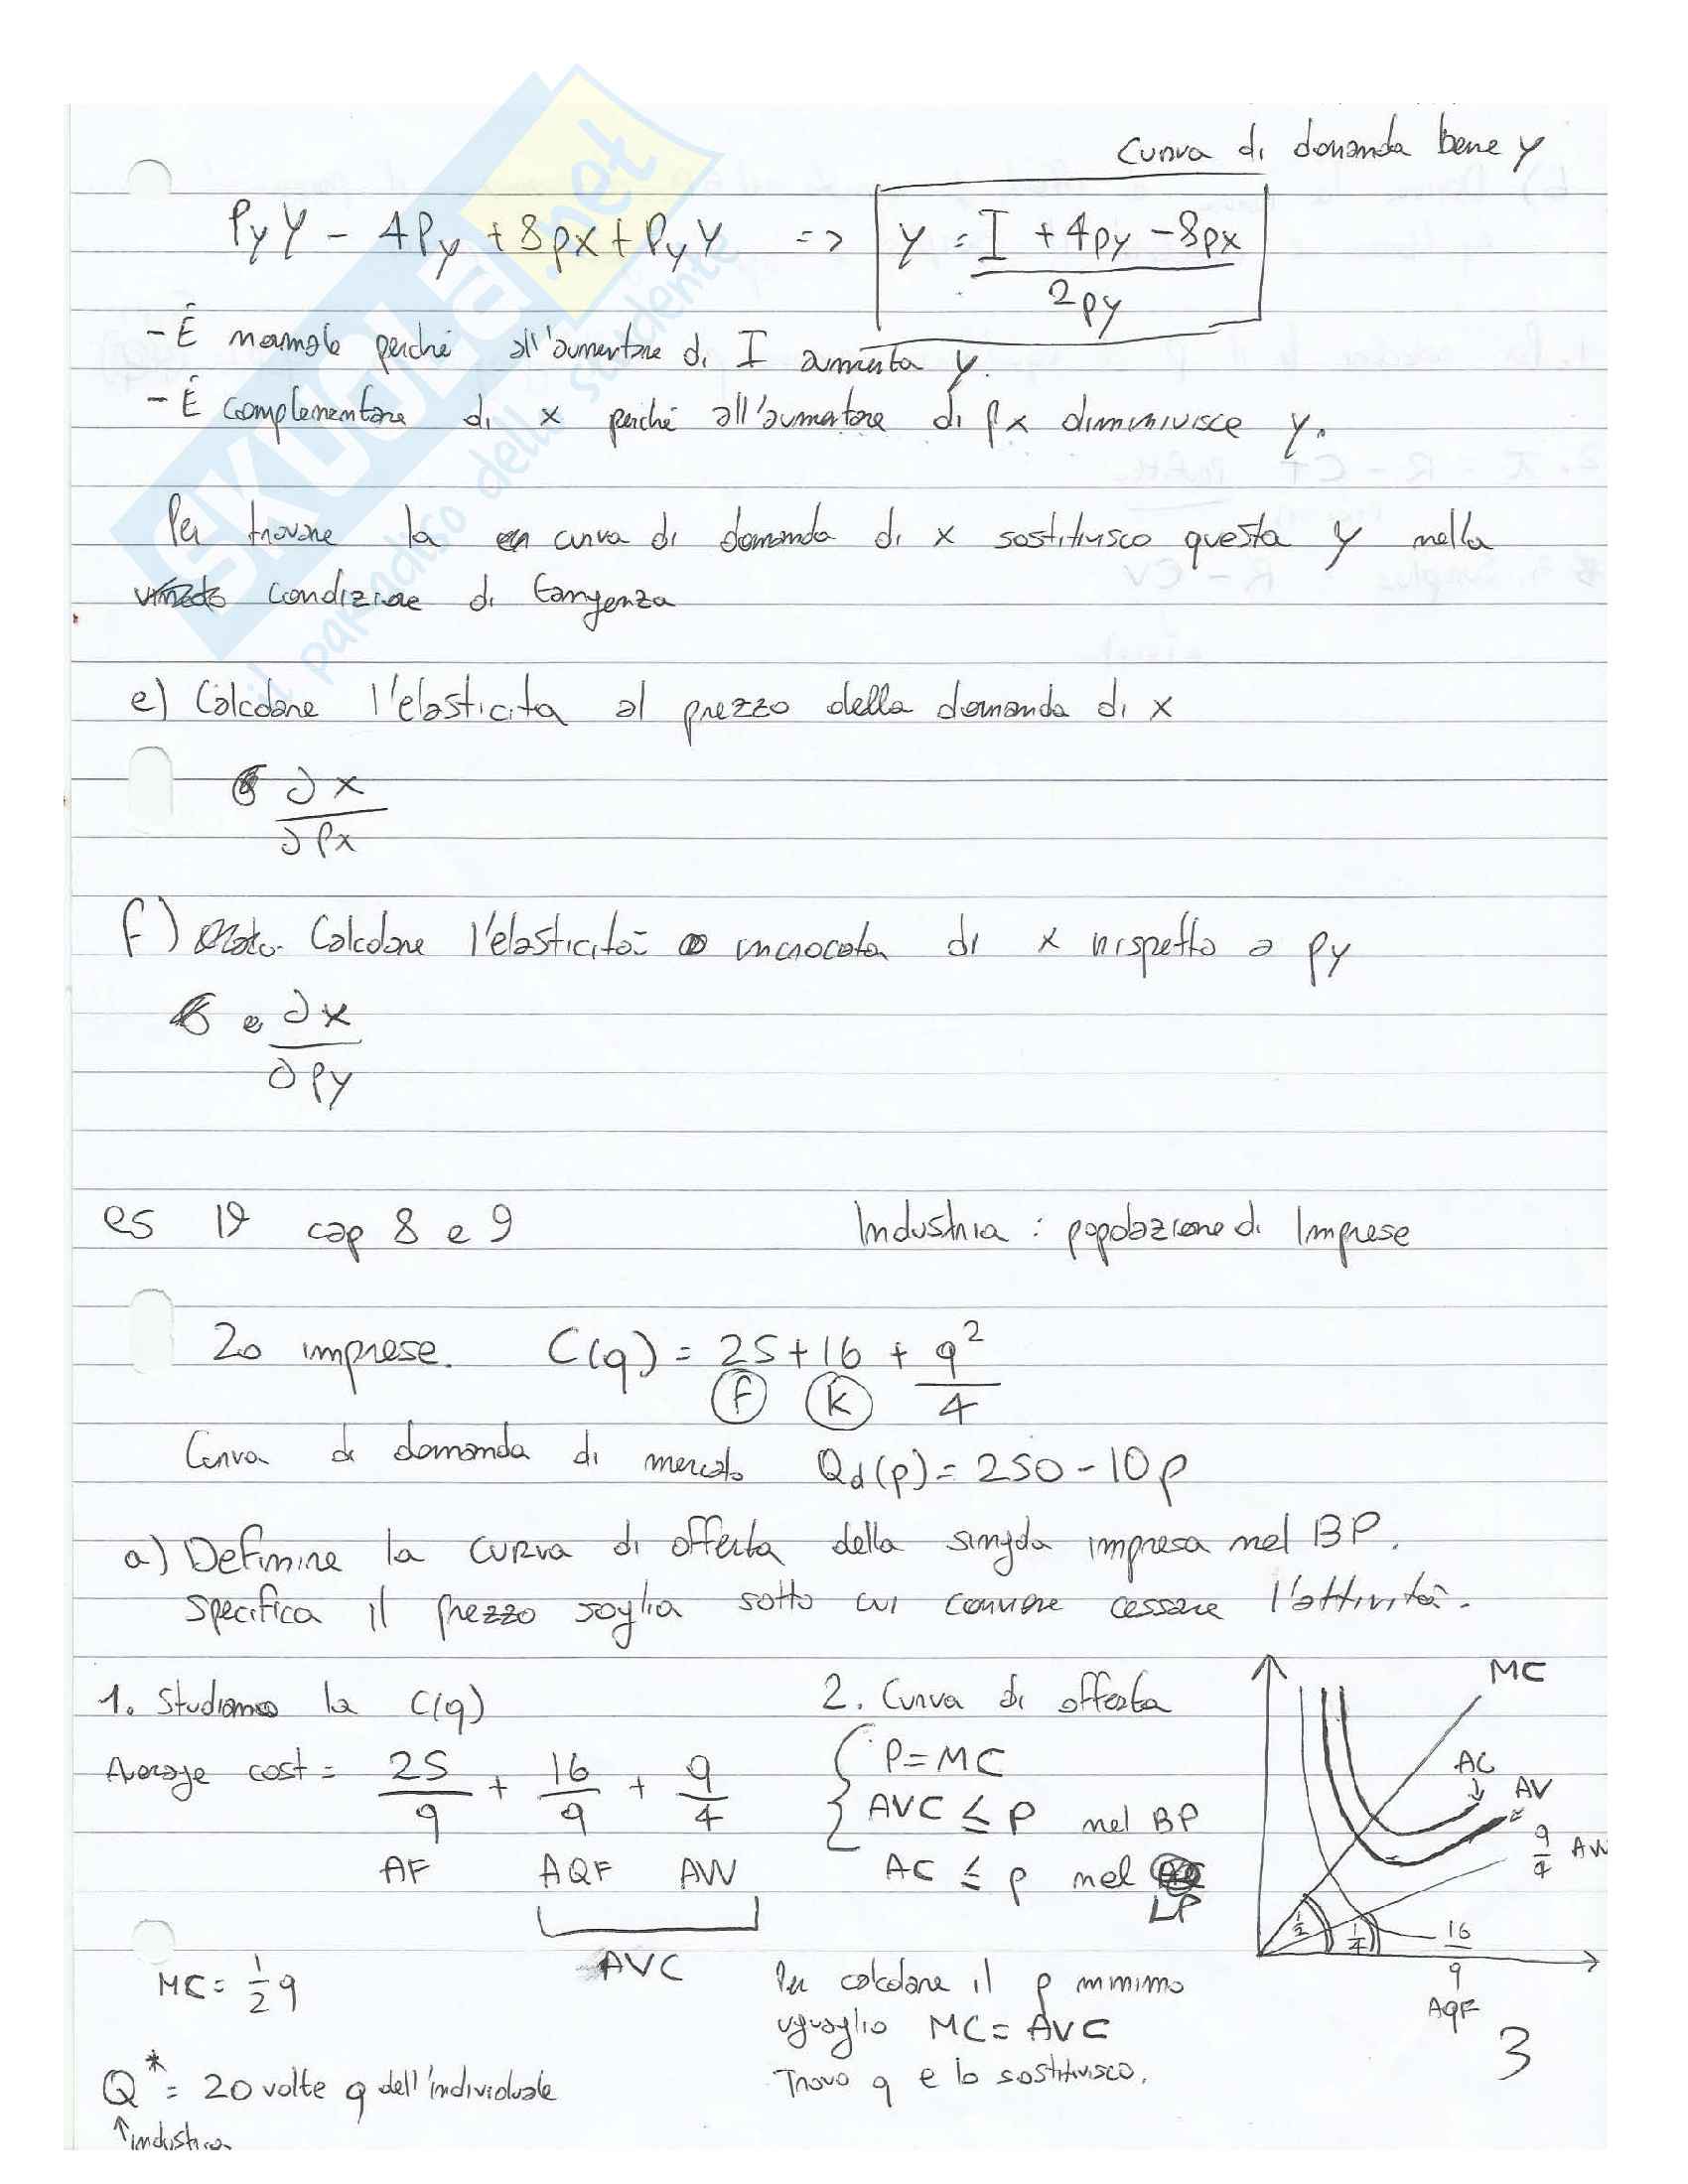 Curva di domanda bene y
PyY - 4Py + 8px + PyY => y = I + 4py - 8px / 2py
- È normale perché all'aumentare di I aumenta y.
- È complementare di x perché all'aumentare di px diminuisce y.
Per trovare la curva di domanda di x sostituisco questa y nella
condizione di tangenza
e) Calcolare l'elasticità al prezzo della domanda di x
∂x / ∂Px
f) Calcolare l'elasticità incrociata di x rispetto a py
∂x / ∂Py
es 19 cap 8 e 9 Industria : popolazione di Imprese
20 imprese. C(q) = 25 + 16 + q² / 4
F K
Curva di domanda di mercato Qd(p) = 250 - 10p
a) Definire la curva di offerta della singola impresa nel BP.
Specifica il prezzo soglia sotto cui conviene cessare l'attività.
1. Studiamo la C(q)
Average cost = 25/q + 16/q + q/4
AF AQF AVV
AVC
MC = 1/2 q
Q* = 20 volte q dell'individuale
↑industria
2. Curva di offerta
P = MC
AVC ≤ P nel BP
AC ≤ p nel
LP
Per calcolare il p minimo
uguaglio MC = AVC
Trovo q e lo sostituisco.
MC
AC
AV
q/4 AVV
1/2 1/4 16/q
AQF
3
SKUOLA.net
il paradiso dello studente